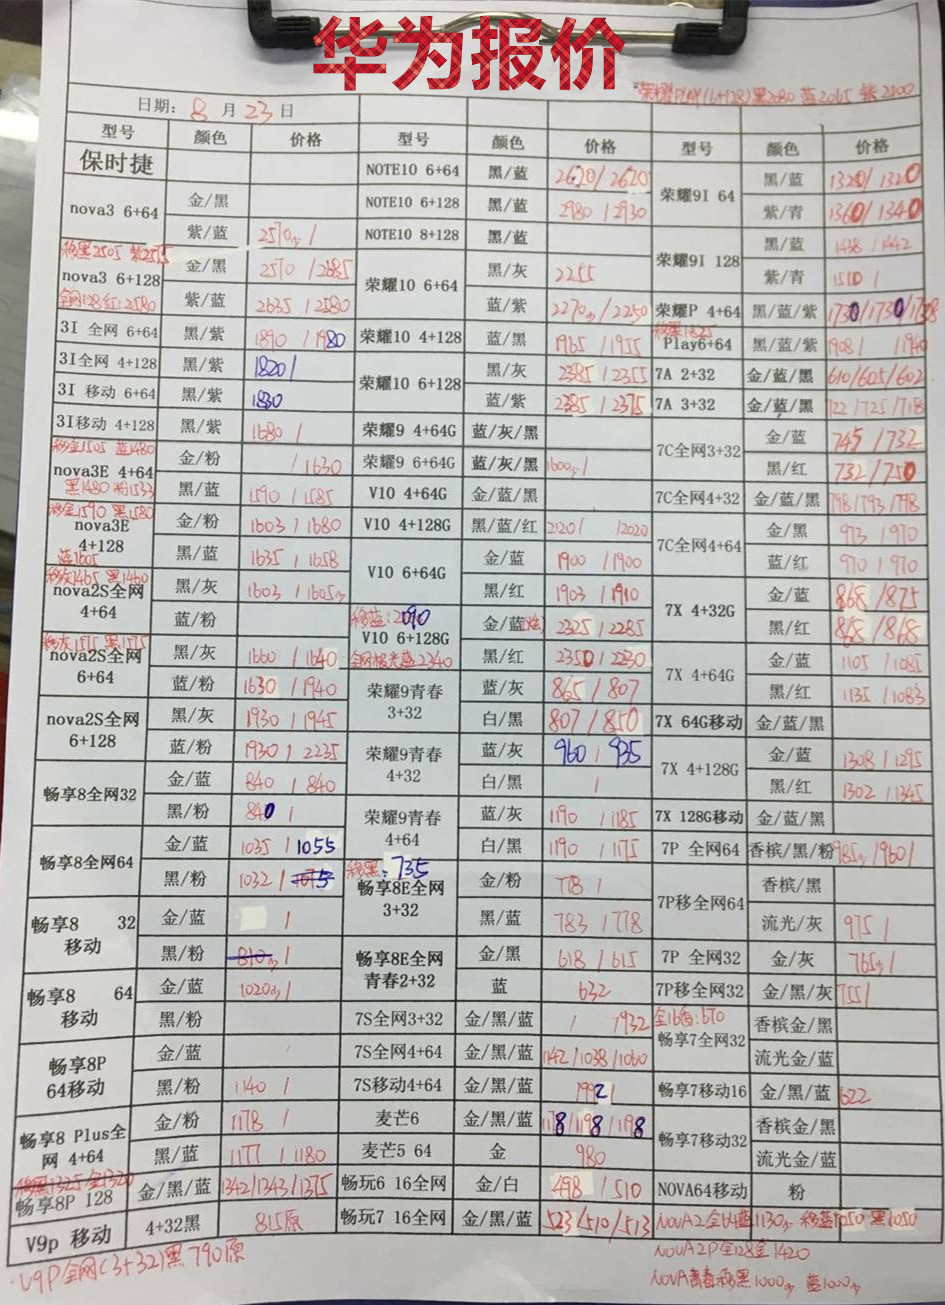 华为报价
荣耀PLAY(6+128)黑2080 蓝2065 紫2100
日期: 8 月 23 日
型号 颜色 价格 型号 颜色 价格 型号 颜色 价格
保时捷 NOTE10 6+64 黑/蓝 2620/2620 荣耀9I 64 黑/蓝 1320/1320
nova3 6+64 金/黑 NOTE10 6+128 黑/蓝 2980/2930 紫/青 1360/1340
紫/蓝 2510 / NOTE10 8+128 黑/蓝 荣耀9I 128 黑/蓝 1438/1442
移黑2505 紫2515
nova3 6+128 金/黑 2570/2685 荣耀10 6+64 黑/灰 2255 紫/青 1510/
全网128红:2580 紫/蓝 2635/2580 蓝/紫 2270/2250 荣耀P 4+64 黑/蓝/紫 1730/1730/1738
3I 全网 6+64 黑/紫 1890/1980 荣耀10 4+128 蓝/黑 1965/1955 移黑1325 Play6+64 黑/蓝/紫 1908/ 1940
3I全网 4+128 黑/紫 1820/ 荣耀10 6+128 黑/灰 2385/2355 7A 2+32 金/蓝/黑 610/605/602
3I 移动 6+64 黑/紫 1830 蓝/紫 2385/2375 7A 3+32 金/蓝/黑 722/725/718
3I移动 4+128 黑/紫 1680/ 荣耀9 4+64G 蓝/灰/黑 7C全网3+32 金/蓝 745/732
移金1505 蓝1480
nova3E 4+64 金/粉 /1630 荣耀9 6+64G 蓝/灰/黑 1600 / 黑/红 732/750
黑1480 粉1533 黑/蓝 1590/1585 V10 4+64G 金/蓝/黑 7C全网4+32 金/蓝/黑 798/793/798
移金1590 黑1580
nova3E 4+128 金/粉 1603/1680 V10 4+128G 黑/蓝/红 2120/ 12020 7C全网4+64 金/黑 973/970
蓝1605 黑/蓝 1635/1658 V10 6+64G 金/蓝 1900/1900 蓝/红 970/970
移灰1465 黑1460
nova2S全网 4+64 黑/灰 1603/1605 黑/红 1903/1910 7X 4+32G 金/蓝 868/875
蓝/粉 移蓝:2090 V10 6+128G 金/蓝 2325/2285 黑/红 868/868
移灰1575 黑1575
nova2S全网 6+64 黑/灰 1660/1640 全网极光蓝2340 黑/红 2350/2230 7X 4+64G 金/蓝 1105/1085
蓝/粉 1630/1940 荣耀9青春 3+32 蓝/灰 865/807 黑/红 1135/1083
nova2S全网 6+128 黑/灰 1930/1945 白/黑 807/850 7X 64G移动 金/蓝/黑
蓝/粉 1930/2235 荣耀9青春 4+32 蓝/灰 960/935 7X 4+128G 金/蓝 1308/1295
畅享8全网32 金/蓝 840/840 白/黑 / 黑/红 1302/1345
黑/粉 840/ 荣耀9青春 4+64 蓝/灰 1190/1185 7X 128G移动 金/蓝/黑
畅享8全网64 金/蓝 1035/1055 白/黑 1190/1175 7P 全网64 香槟/黑/粉 985/960/
黑/粉 1032/ 移黑:735 畅享8E全网 3+32 金/粉 778/ 7P移全网64 香槟/黑
畅享8 32 移动 金/蓝 / 黑/蓝 783/778 流光/灰 975/
黑/粉 810 / 畅享8E全网 青春2+32 金/黑 618/615 7P 全网32 金/灰 765/
畅享8 64 移动 金/蓝 1020/ 蓝 632 7P移全网32 金/黑/灰 755/
黑/粉 7S全网3+32 金/黑/蓝 / 7932 全16香:670 畅享7全网32 香槟金/黑
畅享8P 64移动 金/蓝 7S全网4+64 金/黑/蓝 1142/1038/1060 流光金/蓝
黑/粉 1140/ 7S移动4+64 金/黑/蓝 畅享7移动16 金/黑/蓝 622
畅享8 Plus全网 4+64 金/粉 1178/ 麦芒6 金/黑/蓝 1178/1198/1198 畅享7移动32 香槟金/黑
黑/蓝 1177/1180 麦芒5 64 金 980 流光金/蓝
移黑1325 金1320
畅享8P 128 金/黑/蓝 1342/1343/1375 畅玩6 16全网 金/白 498/510 NOVA64移动 粉
V9p 移动 4+32黑 815原 畅玩7 16全网 金/黑/蓝 523/510/513 NOVA2全64蓝1130 移蓝1050 黑1050
V9P全网(3+32)黑790原
NOVA2P全128金1420
NOVA青春移黑1000 蓝1000